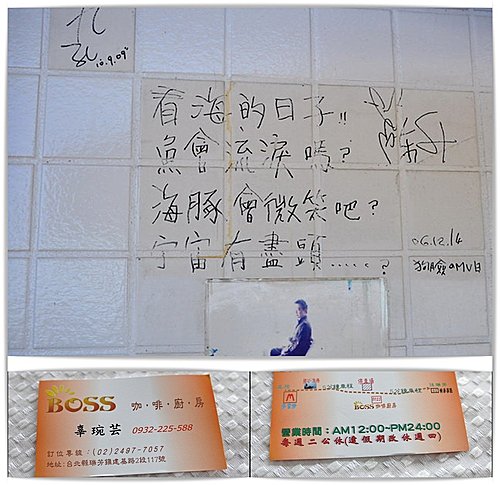 10.9.09
看海的日子!!
魚會流淚嗎?
海豚會微笑吧?
宇宙有盡頭.....?
06.12.14
BOSS 咖·啡·廚·房
辜琬芸 0932-225-588
訂位專線:(02)2497-7057
地址:台北縣瑞芳鎮建基路2段117號
BOSS咖啡廚房
營業時間:AM12:00~PM24:00
每週二公休(遇假期改休週四)